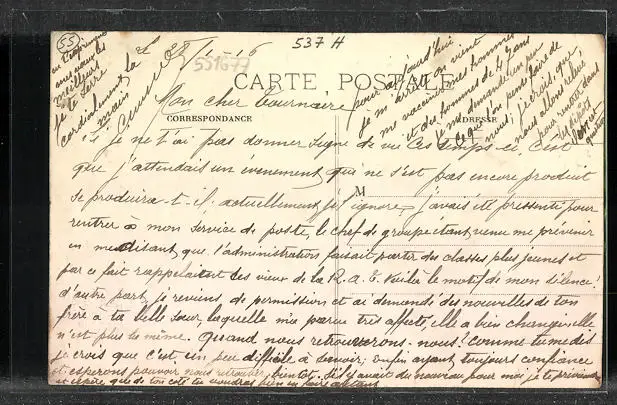 55
537 H
551677
CARTE POSTALE
CORRESPONDANCE
ADRESSE
M
Le 28/1-16
Mon cher Tournaire
Si je ne t'ai pas donner signe de vie ces temps-ci c'est
que j'attendais un évenement qui ne s'est pas encore produit
se produira-t-il actuellement je l'ignore, j'avais été pressenti pour
rentrer à mon service de poste, le chef de groupe étant venu me prévenir
en me disant que l'administration faisait partir des classes plus jeunes et
par ce fait rappelaient des vieux de la R.A.T. Voilà le motif de mon silence!
d'autre part je reviens de permission et ai demandé des nouvelles de ton
frère à ta belle sœur, laquelle m'a parue très affectée, elle a bien changée elle
n'est plus la même. Quand nous retrouverons-nous! comme tu me dis
je crois que c'est un peu difficile à savoir, enfin ayant toujours confiance
et esperons pouvoir nous retrouver bientôt. S'il y avait du nouveau pour moi je te previendrai
et espère que de ton coté tu voudras bien en faire autant
meilleur
je te serre
cordialement la
main
pour aujourd'hui
je m'arrête on vient
nous vacciner nous hommes
et des hommes de 47 ans
je me demande un peu
ce que l'on peut faire de
nous, je crois que
nous allons relever
pour monter dans